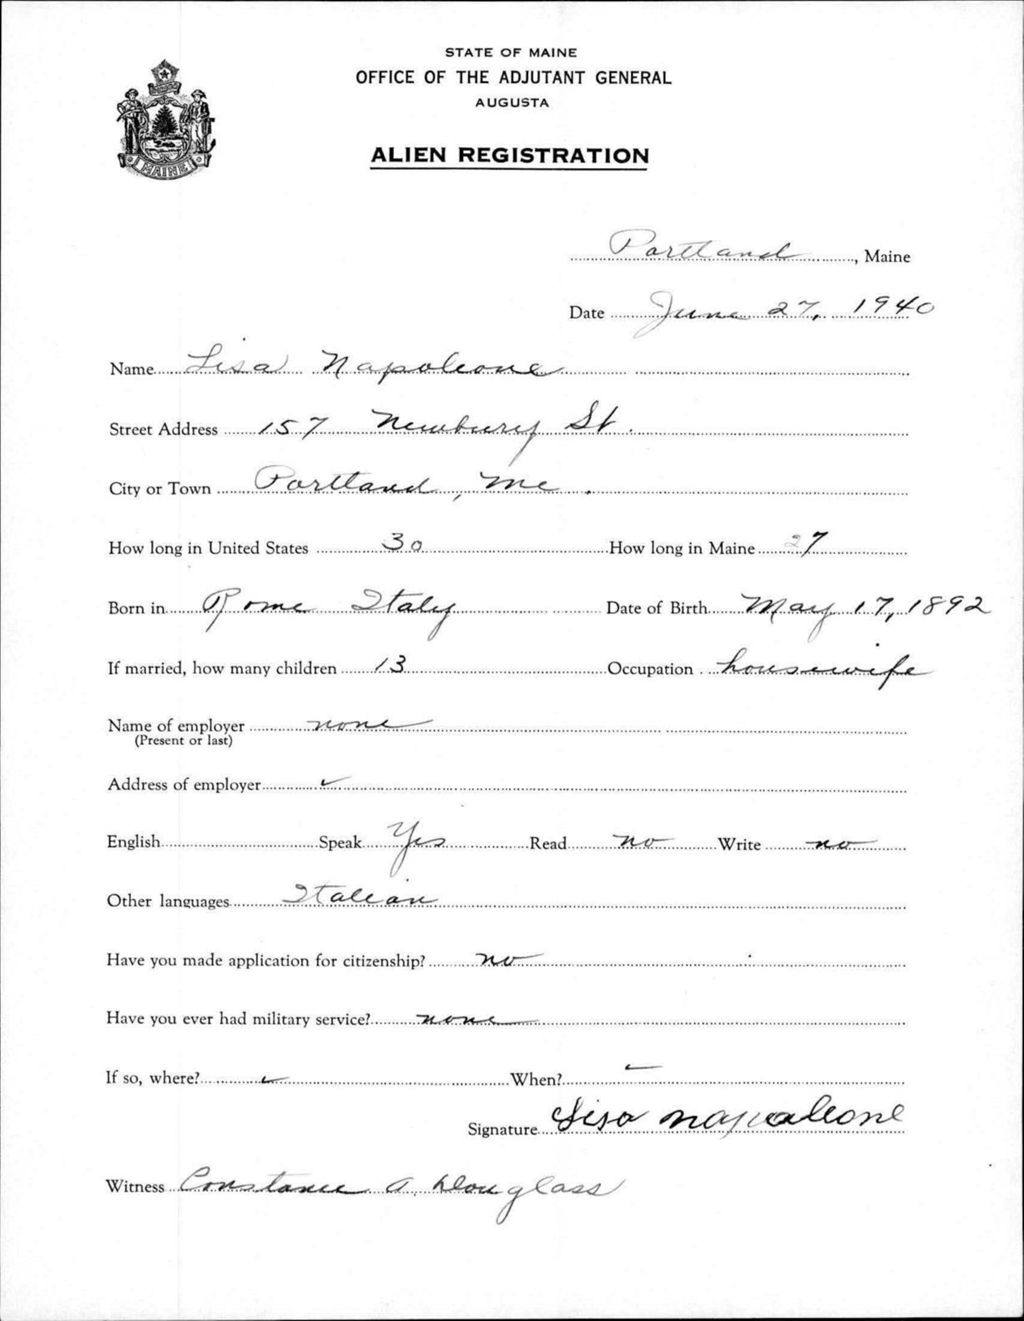 STATE OF MAINE
OFFICE OF THE ADJUTANT GENERAL
AUGUSTA
ALIEN REGISTRATION
MAINE
Portland, Maine
Date June 27, 1940
Name Lisa Napoleone
Street Address 157 Newbury St.
City or Town Portland, Me.
How long in United States 30 How long in Maine 27
Born in Rome Italy Date of Birth May 17, 1892
If married, how many children 13 Occupation housewife
Name of employer none
(Present or last)
Address of employer
English Speak Yes Read no Write no
Other languages Italian
Have you made application for citizenship? no
Have you ever had military service? none
If so, where? When?
Signature Lisa Napoleone
Witness Constance A. Douglass